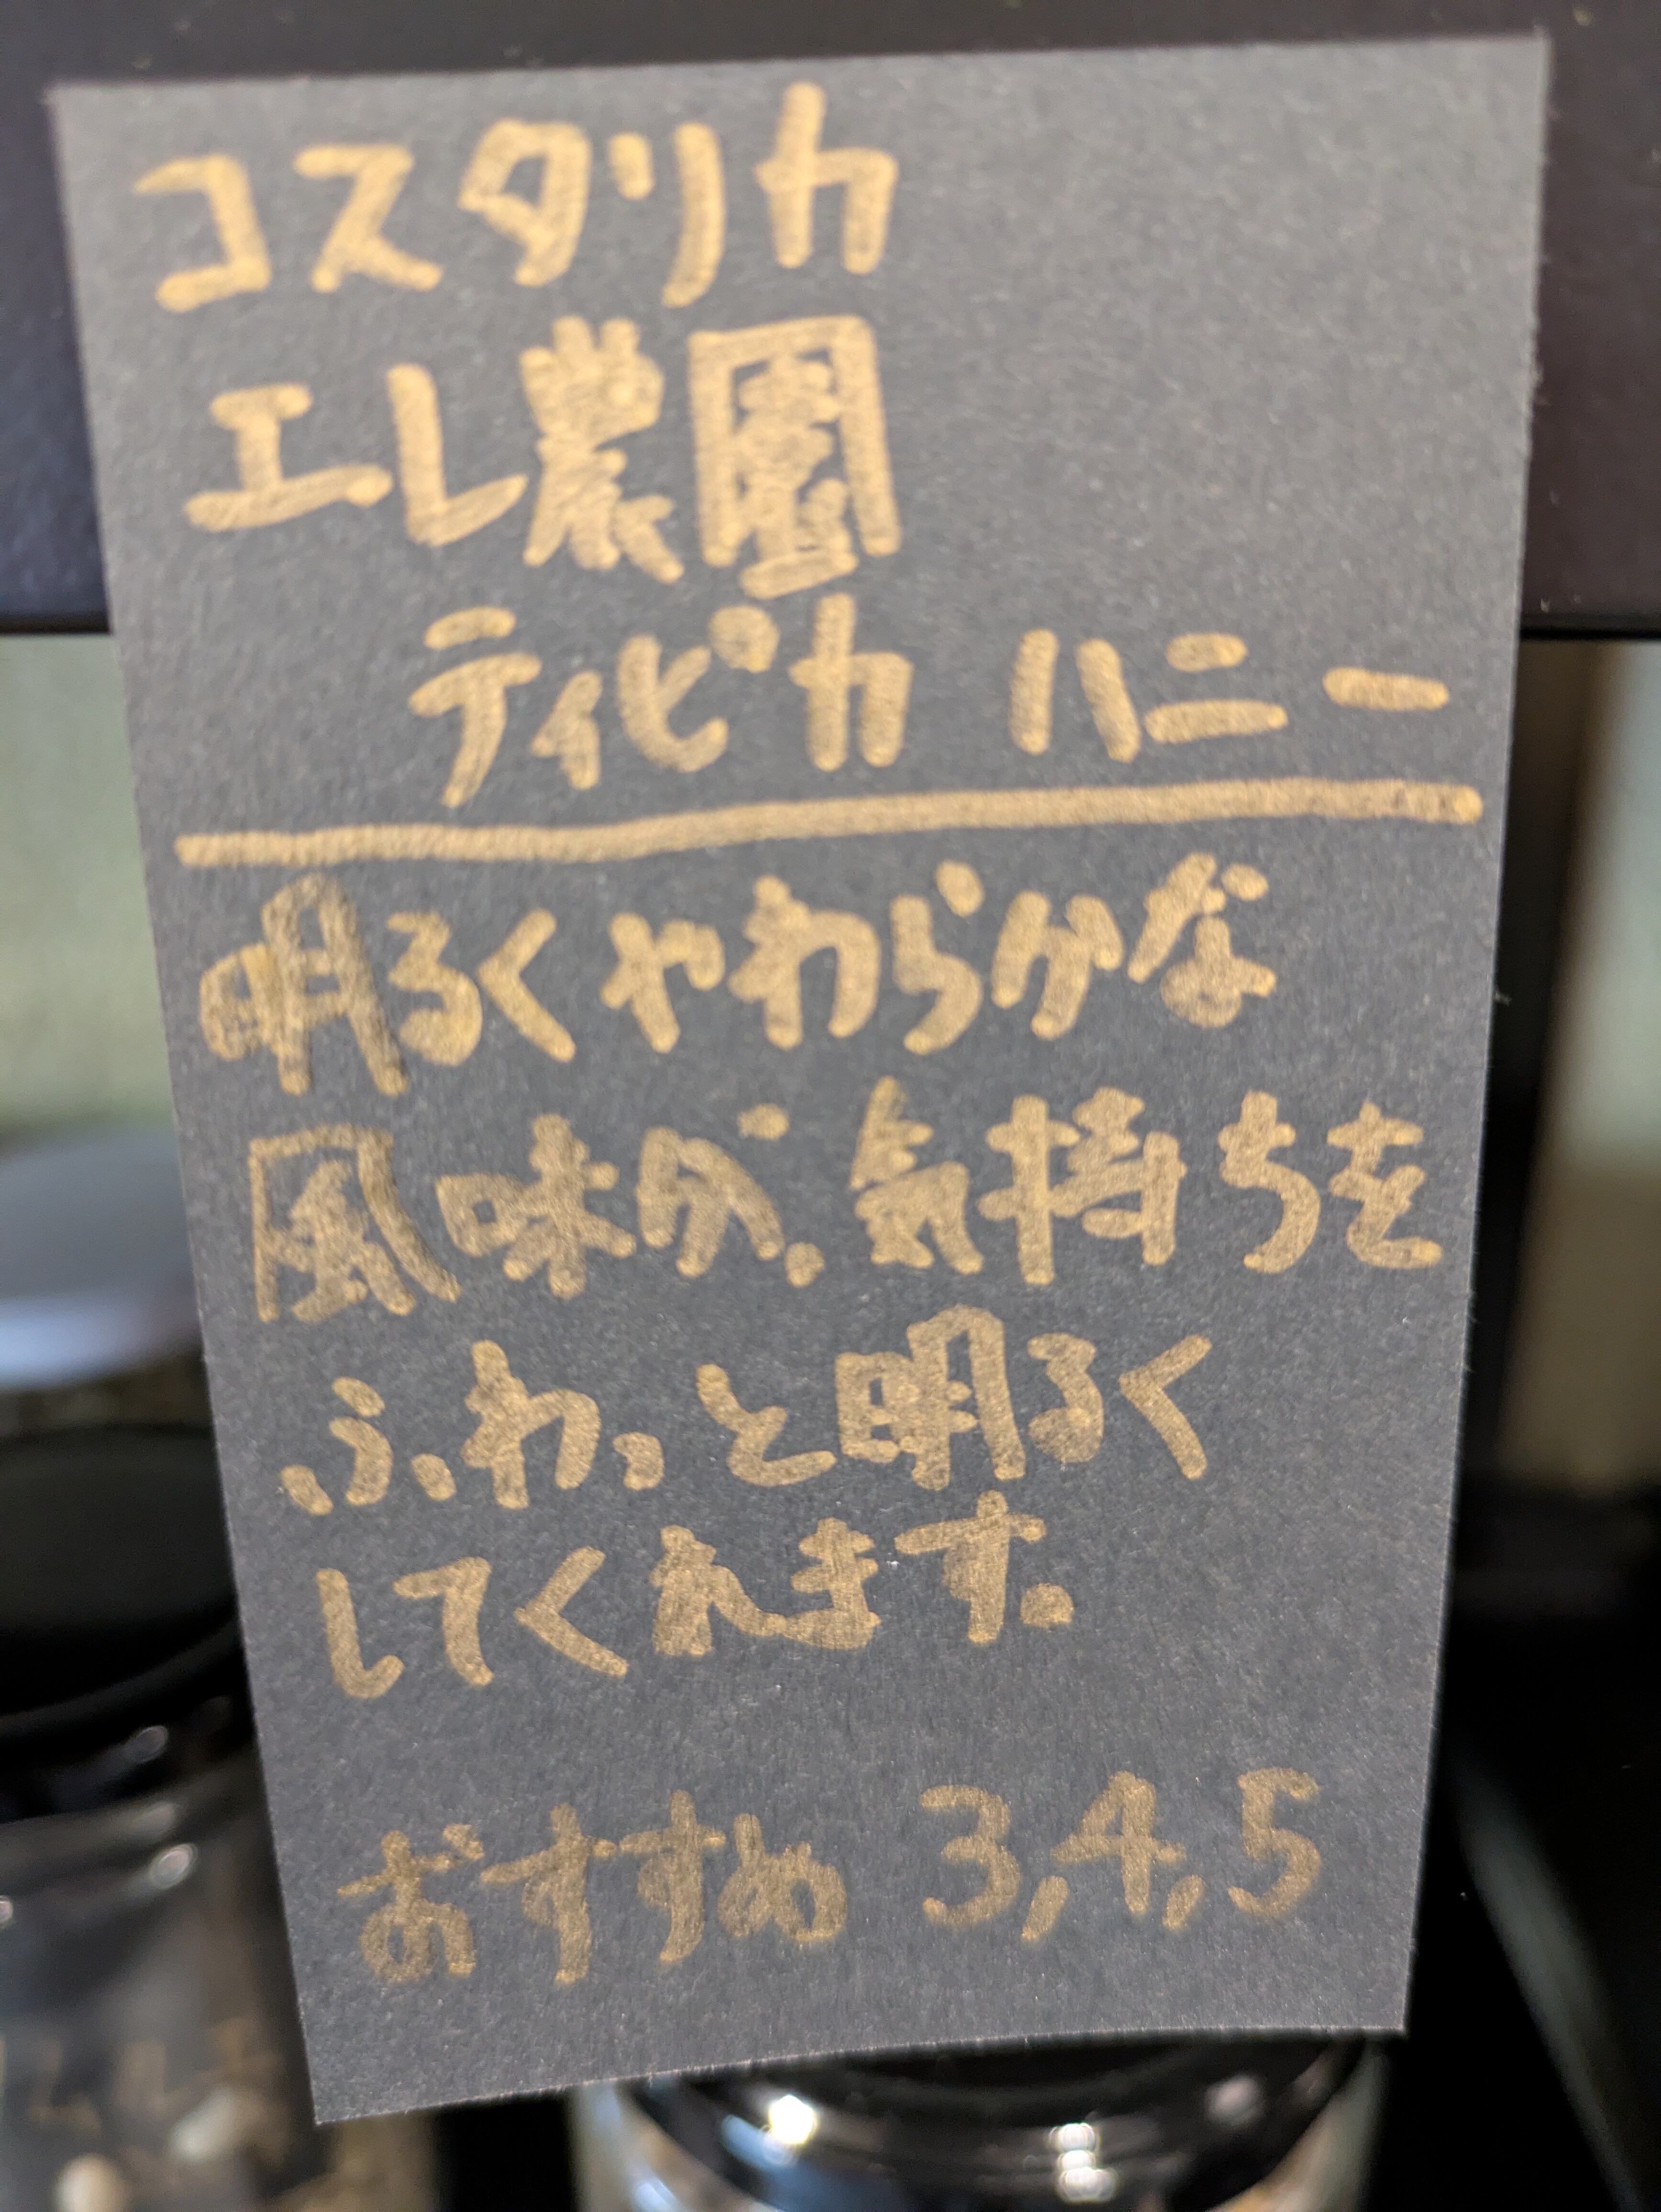 コスタリカ
エレ農園
ティピカ ハニー
明るくやわらかな
風味が、気持ちを
ふわっと明るく
してくれます。
おすすめ 3,4,5